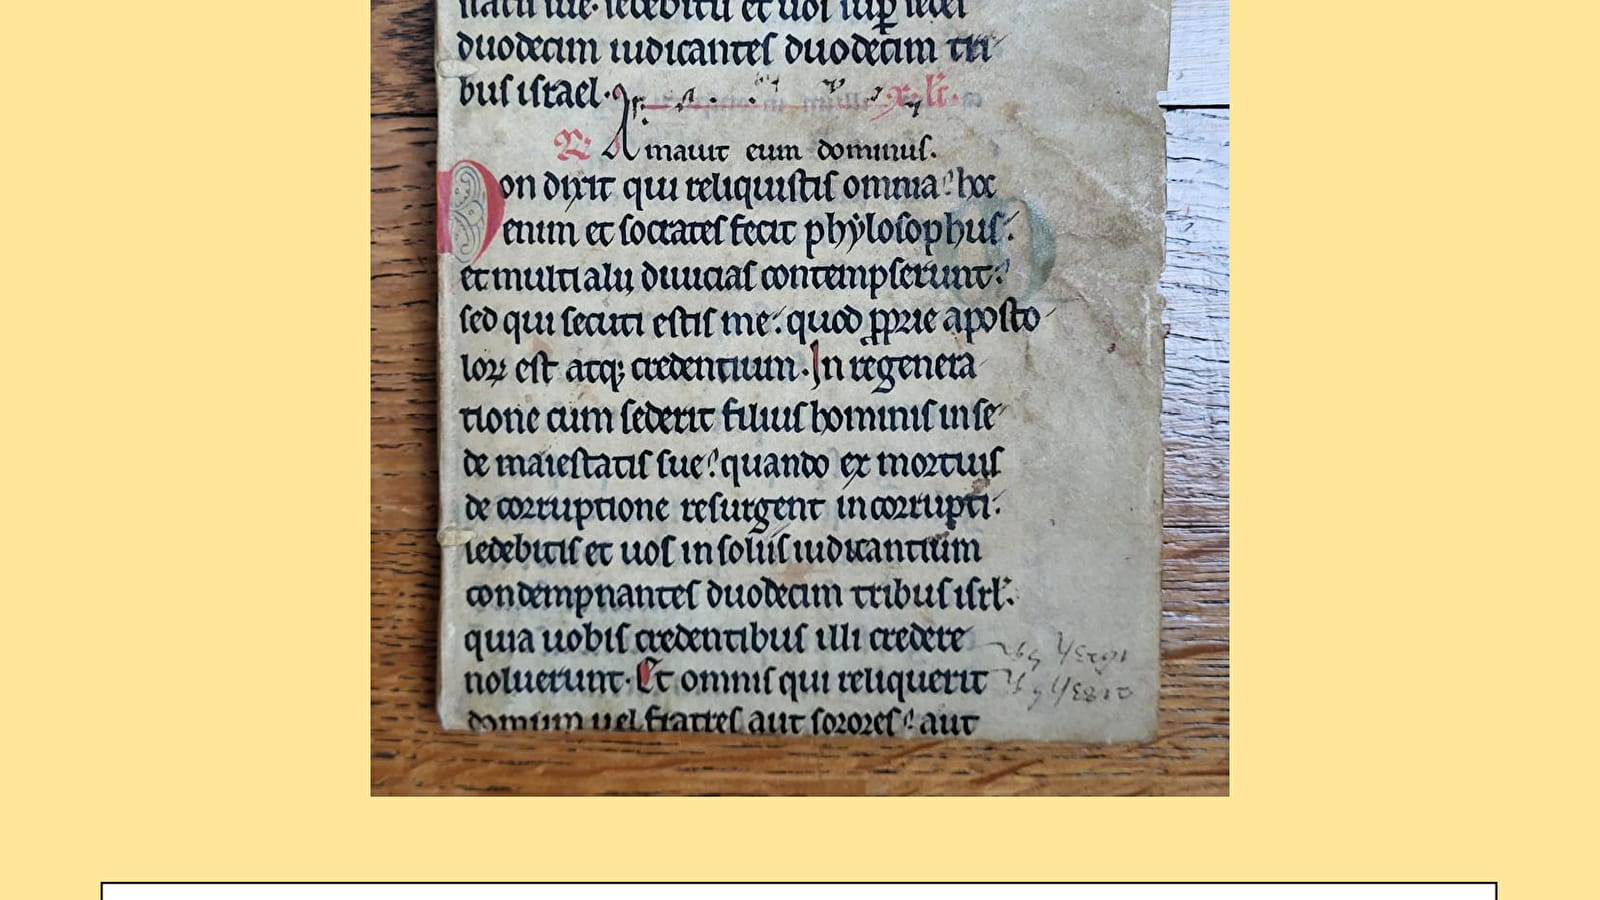 sedebitis et uos sup sedes
duodecim iudicantes duodecim tri
bus israel.
R Amauit eum dominus.
Non dixit qui reliquistis omnia hoc
enim et socrates fecit phylosophus.
et multi alij diuicias contempserunt.
sed qui secuti estis me. quod pprie aposto
loꝝ est atqꝫ credentium. In regenera
tione cum sederit filius hominis in se
de maiestatis sue. quando ex mortuis
de corruptione resurgent incorrupti.
sedebitis et uos in soliis iudicantium
condempnantes duodecim tribus isrl.
quia uobis credentibus illi credere
noluerunt. Et omnis qui reliquerit
domum uel fratres aut sorores aut